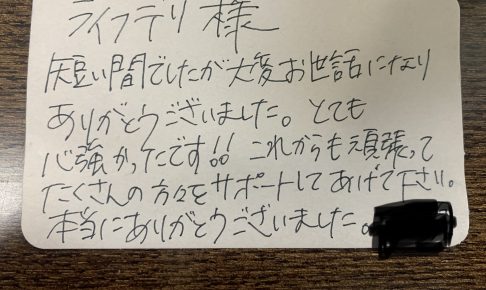 ライフデリ 様
短い間でしたが大変お世話になり
ありがとうございました。とても
心強かったです!! これからも頑張って
たくさんの方々をサポートしてあげて下さい。
本当にありがとうございました。